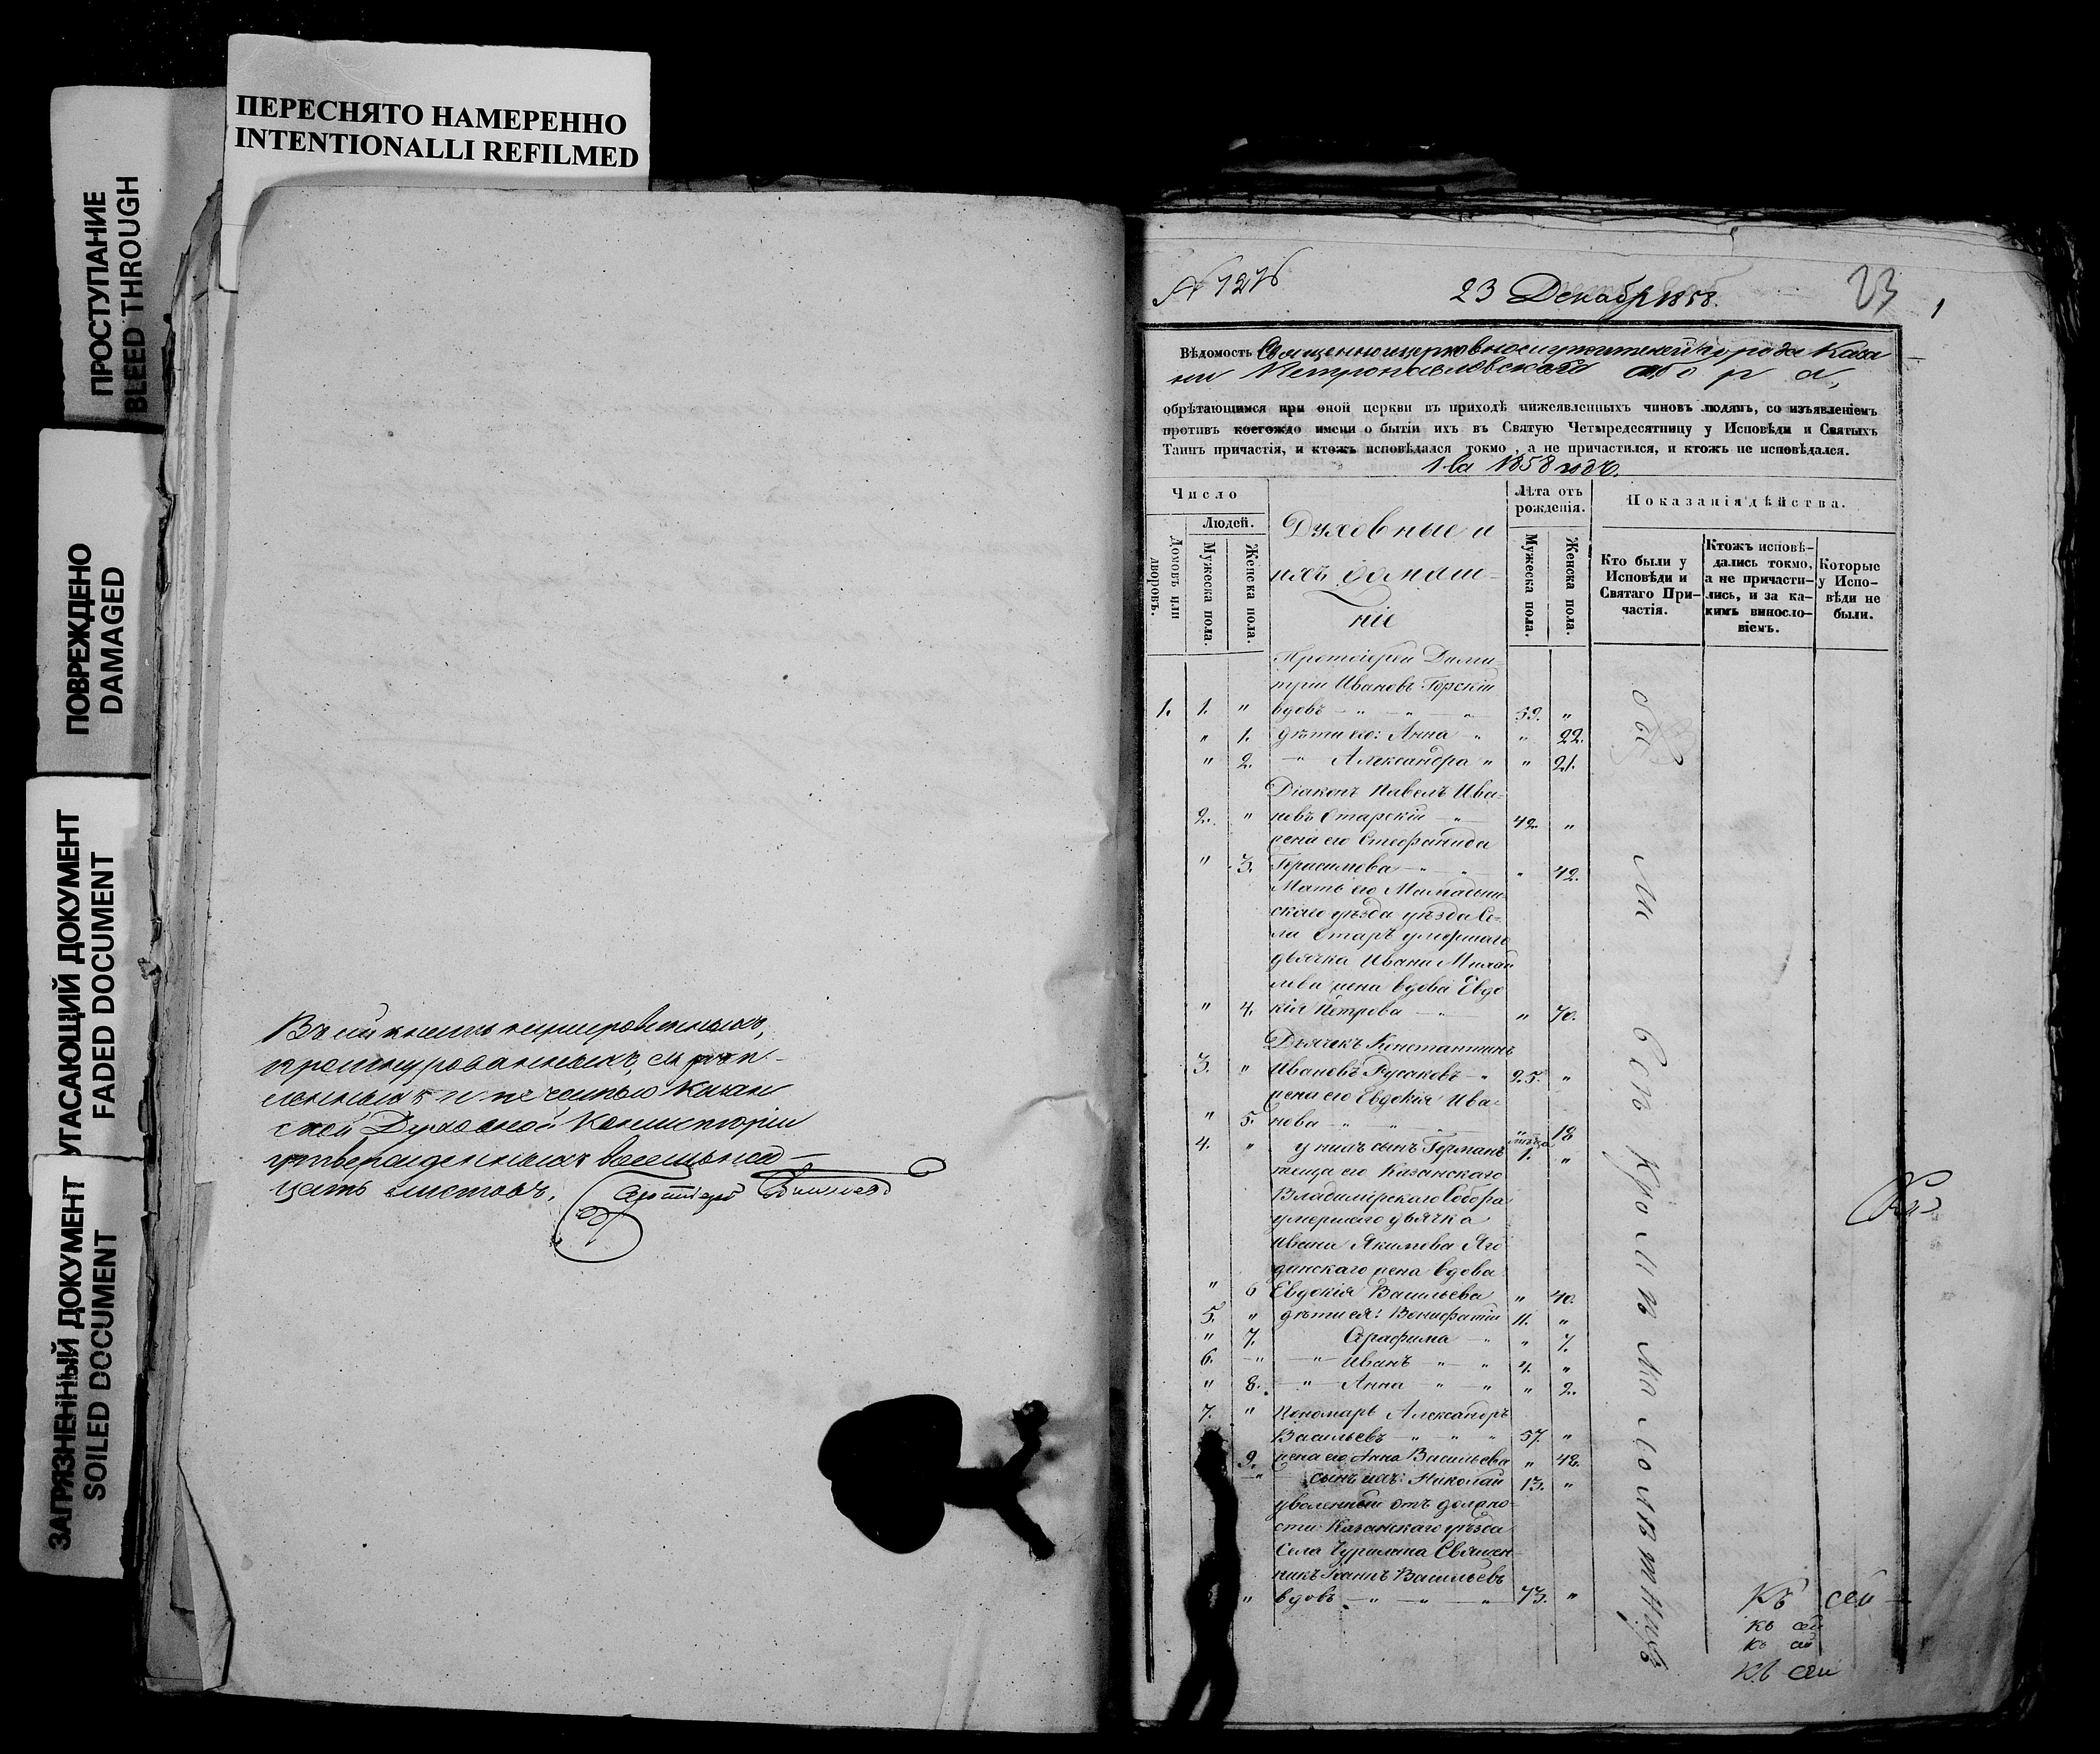 ПЕРЕСНЯТО НАМЕРЕННО
INTENTIONALLI REFILMED
ПРОСТУПАНИЕ
BLEED THROUGH
ПОВРЕЖДЕНО
DAMAGED
УГАСАЮЩИЙ ДОКУМЕНТ
FADED DOCUMENT
ЗАГРЯЗНЕННЫЙ ДОКУМЕНТ
SOILED DOCUMENT
Въ сей книгѣ нумерованныхъ,
прошнурованныхъ, скрѣп-
ленныхъ и печатью Казан
ской Духовной Консисторіи
утвержденныхъ восемьна
цать листовъ.
23 Декабр 1858.
23
1
Вѣдомость Священноицерковнослужителей города Каза
ни Петропавловскаго собора,
обрѣтающимся при оной церкви въ приходѣ нижеявленныхъ чиновъ людямъ, со изъявленіемъ
противъ коегождо имени о бытіи ихъ въ Святую Четыредесятницу у Исповѣди и Святыхъ
Таинъ причастія, и ктожъ исповѣдался токмо, а не причастился, и ктожъ не исповѣдался.
1858 годъ.
Число
Людей.
Домовъ или дворовъ.
Мужеска пола.
Женска пола.
Духовные и
ихъ домаш-
ніе
Лѣта отъ рожденія.
Мужеска пола.
Женска пола.
Показанія дѣйства.
Кто были у Исповѣди и Святаго Причастія.
Ктожъ исповѣ-
дались токмо,
а не причасти-
лись, и за ка-
кимъ винословіемъ.
Которые
у Испо-
вѣди не
были.
Протоіерей Дими-
трій Ивановъ Горскій
1. 1. " вдовъ " " " 59. "
" 1. дѣти его: Анна " " 22.
" 2. " Александра " " 21.
Діаконъ Павелъ Ива-
2. " новъ Отарскій " 42. "
жена его Стефанида
" 3. Герасимова " " " 42.
Мать его Мамадыш-
скаго уѣзда уѣзда Се-
ла Отаръ умершаго
дьячка Ивана Михай
лова жена вдова Евдо
" 4. кія Петрова " " 70.
Дьячекъ Константинъ
3. " Ивановъ Русаковъ " 25. "
жена его Евдокія Ива-
" 5. нова " " " 18
4. " у нихъ сынъ Германъ 1. "
теща его Казанскаго
Владимірскаго Собора
умершаго дьячка
Ивана Якимова Яго
динскаго жена вдова
" 6 Евдокія Васильева " 40.
5. " дѣти ея: Вонифатій 11. "
" 7. Серафима " " 7.
6. " " Иванъ " " 4. "
" 8. " Анна " " " 2.
7. " Пономарь Александръ
Васильевъ " " " 57. "
9. жена его Анна Васильева " 42.
" сынъ ихъ: Николай 13. "
уволенный отъ должно-
сти Казанскаго уѣзда
Села Чурилина Священ
никъ Іоаннъ Васильевъ
" вдовъ " " " 73. "
были всѣ кромѣ малолѣтнихъ
Къ сей
къ сей
къ сей
Къ сей